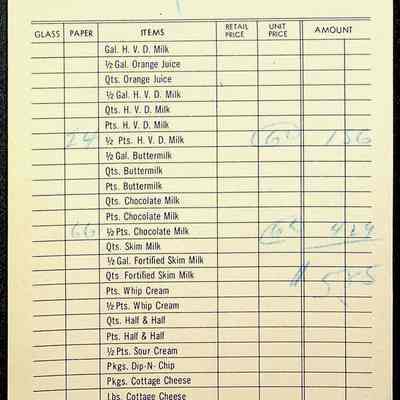 GLASS PAPER ITEMS RETAIL PRICE UNIT PRICE AMOUNT
Gal. H. V. D. Milk
½ Gal. Orange Juice
Qts. Orange Juice
½ Gal. H. V. D. Milk
Qts. H. V. D. Milk
Pts. H. V. D. Milk
24 ½ Pts. H. V. D. Milk 6½ 156
½ Gal. Buttermilk
Qts. Buttermilk
Pts. Buttermilk
Qts. Chocolate Milk
Pts. Chocolate Milk
66 ½ Pts. Chocolate Milk 6½ 429
Qts. Skim Milk
½ Gal. Fortified Skim Milk
Qts. Fortified Skim Milk $ 585
Pts. Whip Cream
½ Pts. Whip Cream
Qts. Half & Half
Pts. Half & Half
½ Pts. Sour Cream
Pkgs. Dip-N- Chip
Pkgs. Cottage Cheese
Lbs. Cottage Cheese